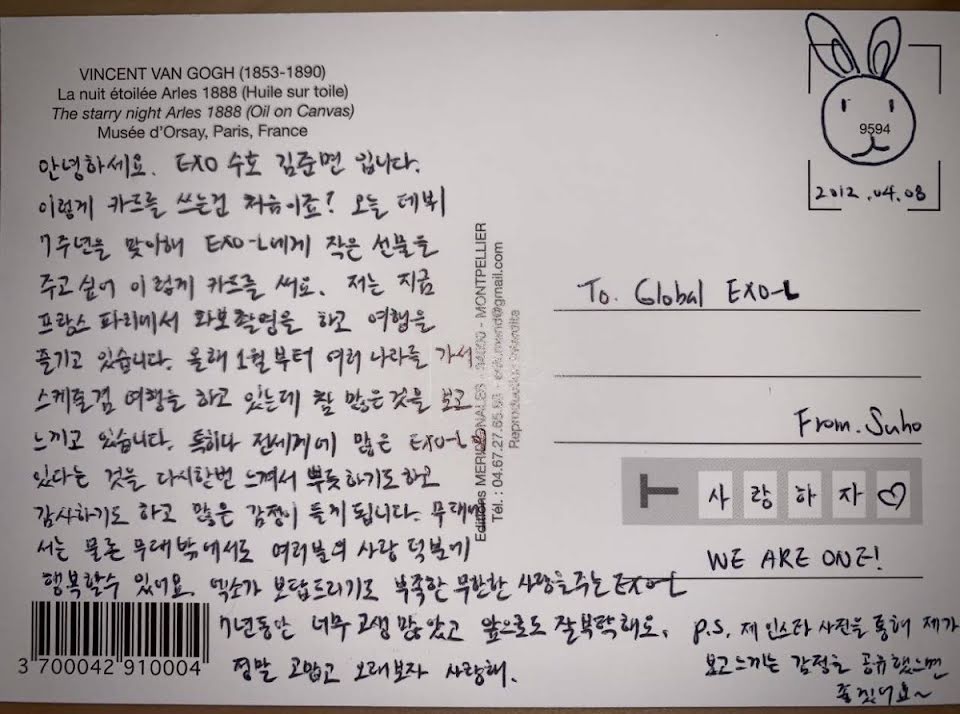 VINCENT VAN GOGH (1853-1890)
La nuit étoilée Arles 1888 (Huile sur toile)
The starry night Arles 1888 (Oil on Canvas)
Musée d'Orsay, Paris, France
9594
2012.04.08
안녕하세요. EXO 수호 김준면 입니다.
이렇게 카드를 쓰는건 처음이죠? 오늘 데뷔
7주년을 맞이해 EXO-L에게 작은 선물을
주고싶어 이렇게 카드를 써요. 저는 지금
프랑스 파리에서 화보촬영을 하고 여행을
즐기고 있습니다. 올해 1월부터 여러 나라를 가서
스케줄겸 여행을 하고 있는데 참 많은것을 보고
느끼고 있습니다. 특히나 전세계에 많은 EXO-L
있다는 것을 다시한번 느껴서 뿌듯하기도하고
감사하기도 하고 많은 감정이 들게 됩니다. 무대에
서는 물론 무대밖에서도 여러분의 사랑 덕분에
행복할수 있어요. 엑소가 보답드리기도 부족한 무한한 사랑을주는 EXO-L
7년동안 너무 고생 많았고 앞으로도 잘부탁해요.
정말 고맙고 오래보자 사랑해.
3 700042 910004
Editions MERIDIONALES - MONTPELLIER
Tél. : 04.67.27.65
Reproduction interdite
To. Global EXO-L
From. Suho
T 사랑하자♡
WE ARE ONE!
p.s. 제 인스타 사진을 통해 제가
보고느끼는 감정을 공유했으면
좋겠어요~